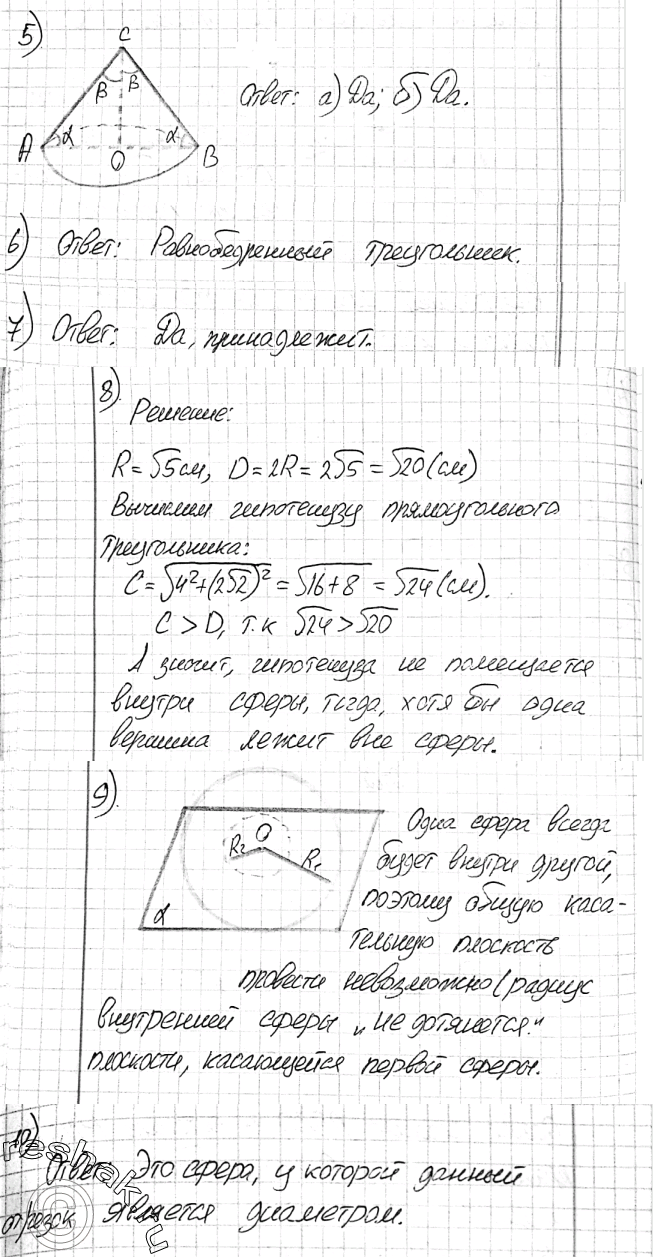 5)
C
β β
A α α B
O
Ответ: а) Да; б) Да.
6) Ответ: Равнобедренный треугольник.
7) Ответ: Да, принадлежит.
8) Решение:
R = √5 см, D = 2R = 2√5 = √20 (см)
Вычислим гипотенузу прямоугольного
треугольника:
C = √(4² + (2√2)²) = √(16 + 8) = √24 (см).
C > D, т.к √24 > √20
А значит, гипотенуза не помещается
внутри сферы, тогда, хотя бы одна
вершина лежит вне сферы.
9)
O
R₂ R₁
α
Одна сфера всегда
будет внутри другой,
поэтому общую каса-
тельную плоскость
провести невозможно (радиус
внутренней сферы „не дотянется"
плоскости, касающейся первой сферы.
10)
reshak
Ответ: Это сфера, у которой данный
отрезок является диаметром.